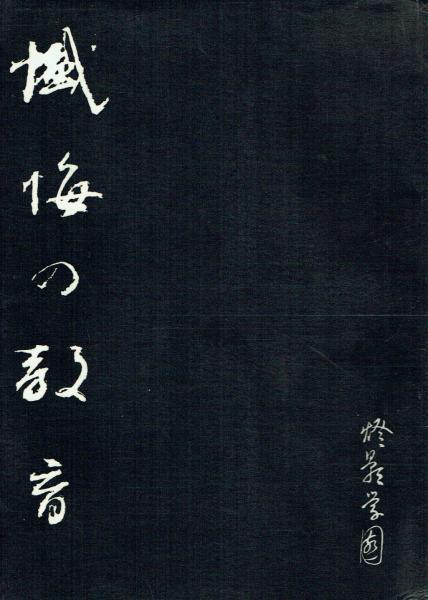 懺悔の教育
燈影学園